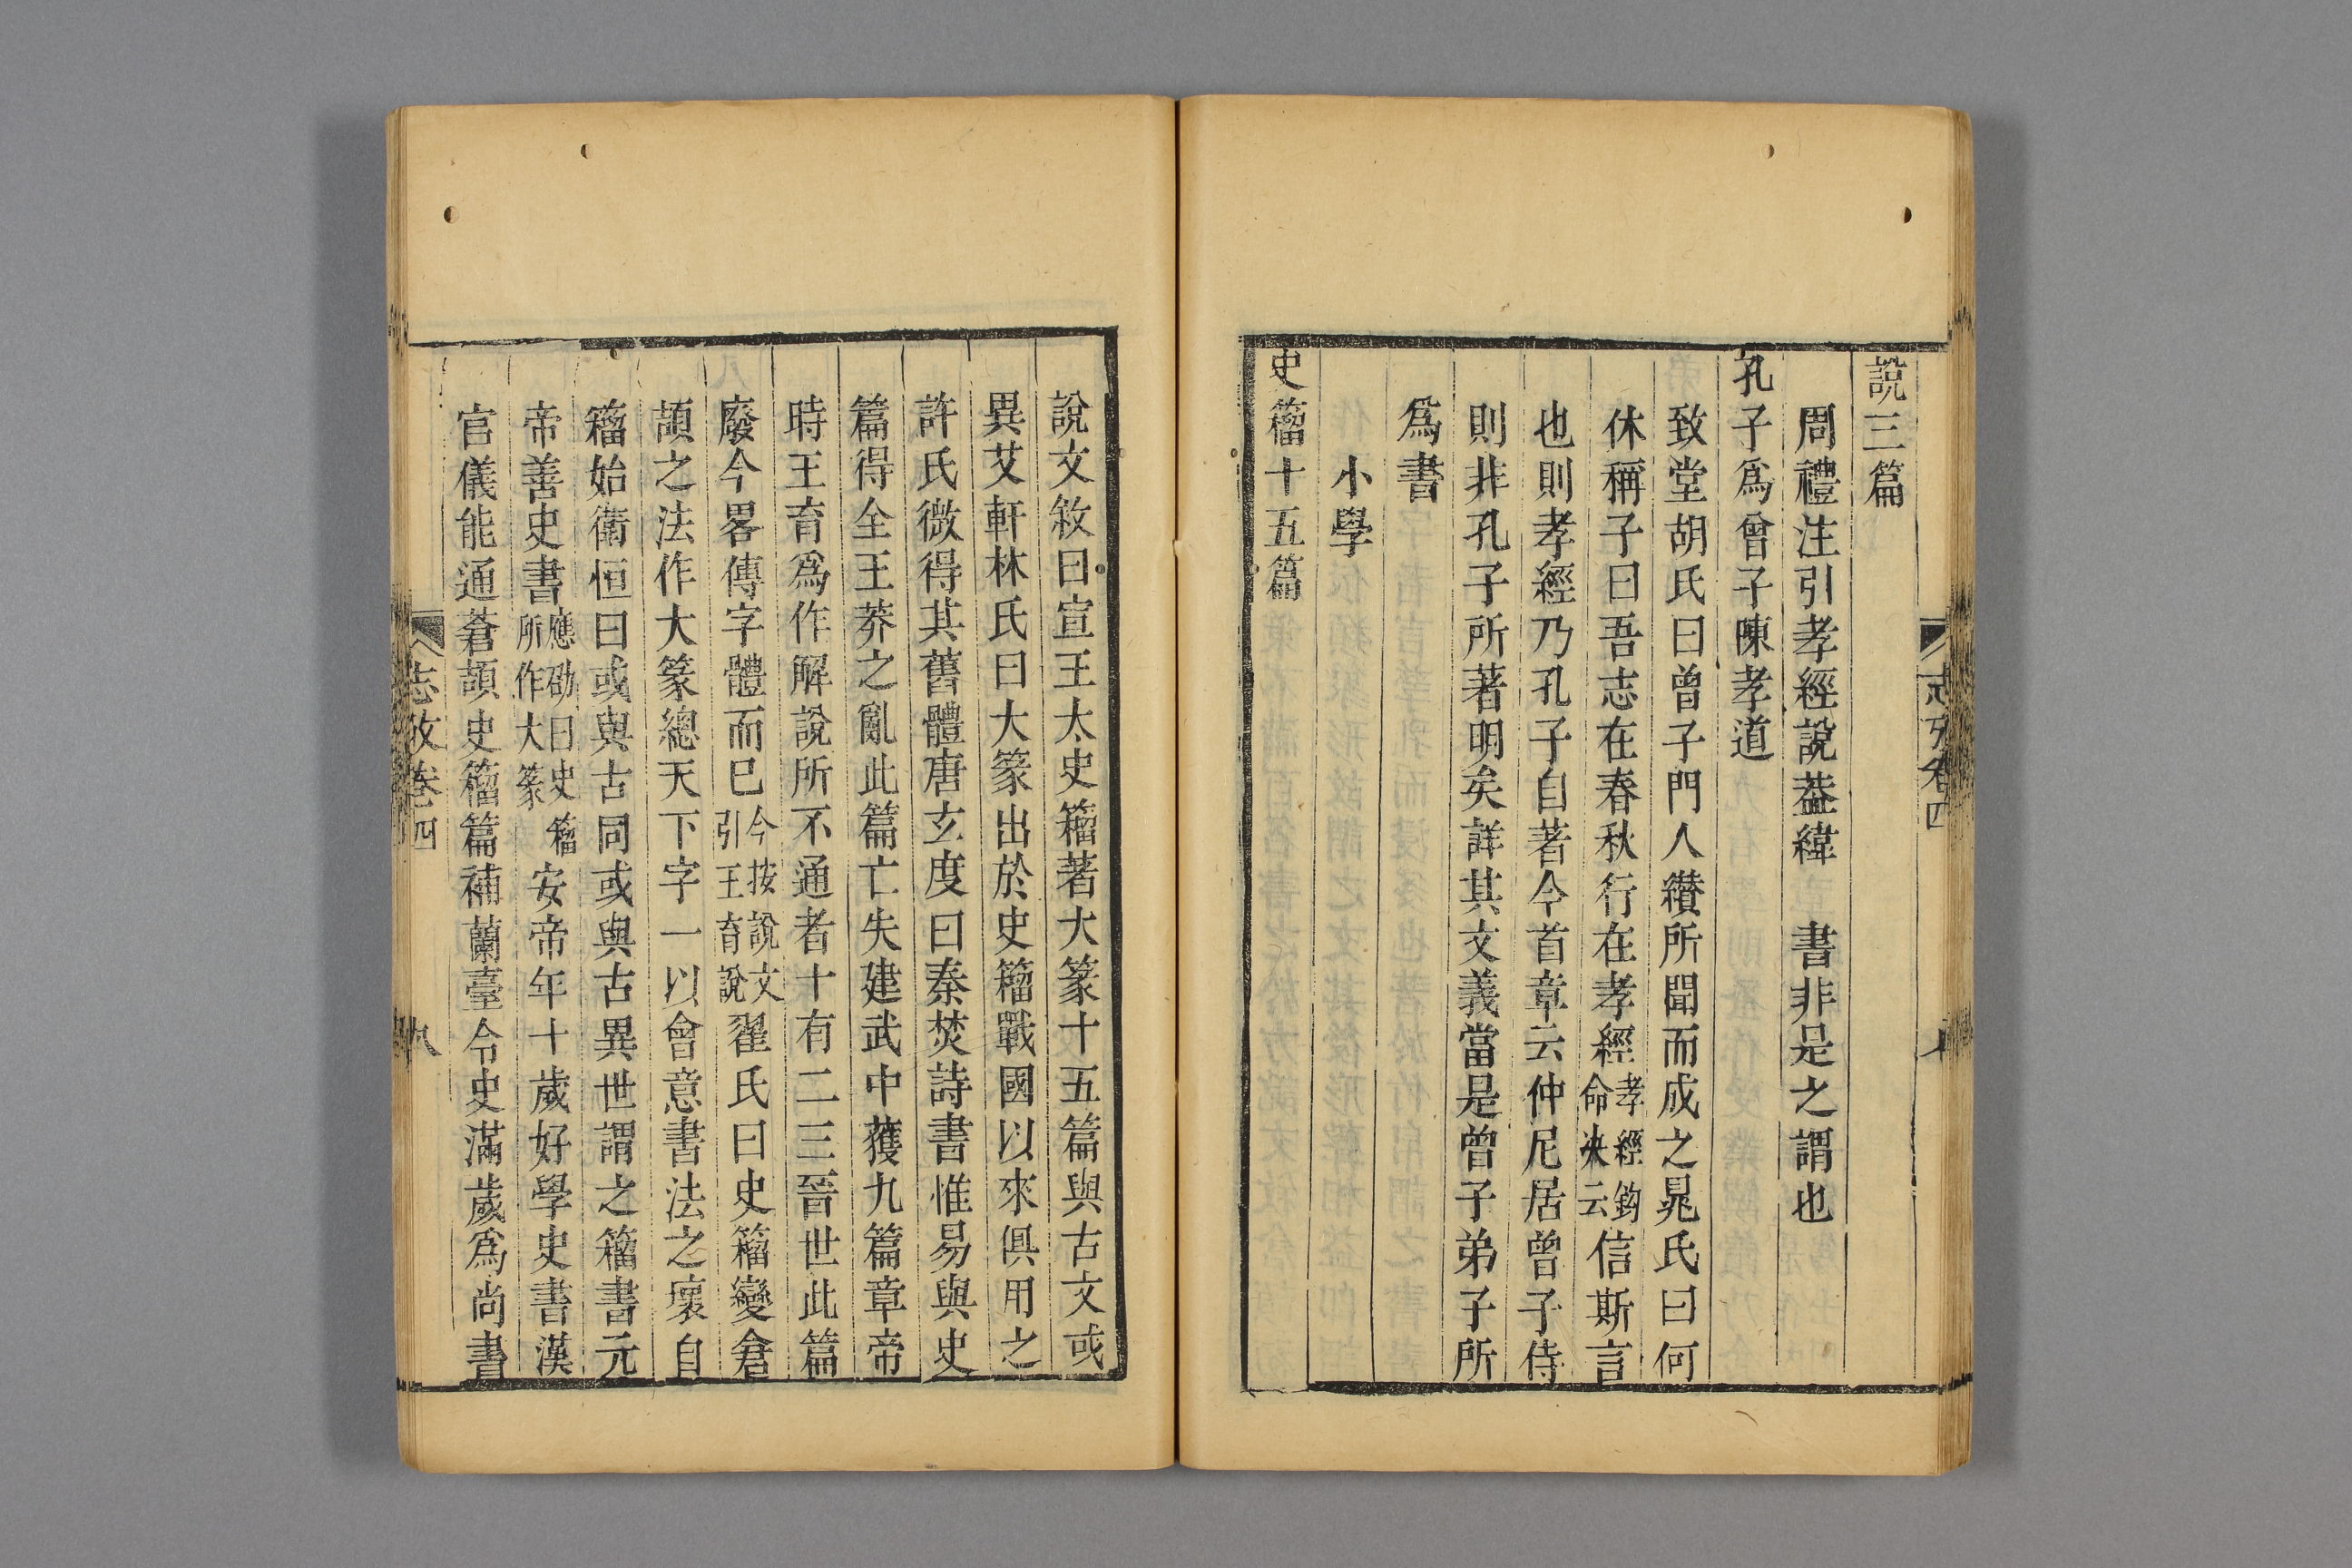 說三篇
周禮注引孝經說葢緯　書非是之謂也
孔子爲曾子陳孝道
致堂胡氏曰曾子門人纉所聞而成之晁氏曰何
休稱子曰吾志在春秋行在孝經孝經鉤命決云信斯言
也則孝經乃孔子自著今首章云仲尼居曾子侍
則非孔子所著明矣詳其文義當是曾子弟子所
爲書
小學
史籀十五篇
說文敘曰宣王太史籀著大篆十五篇與古文或
異艾軒林氏曰大篆出於史籀戰國以來俱用之
許氏微得其舊體唐玄度曰秦焚詩書惟易與史
篇得全王莽之亂此篇亡失建武中獲九篇章帝
時王育爲作解說所不通者十有二三晉世此篇
廢今畧傳字體而巳今按說文引王育說翟氏曰史籀變倉
頡之法作大篆總天下字一以會意書法之壞自
籀始衛恒曰或與古同或與古異世謂之籀書元
帝善史書應劭曰史籀所作大篆安帝年十歲好學史書漢
官儀能通蒼頡史籀篇補蘭臺令史滿歲爲尚書
志攷卷四
九